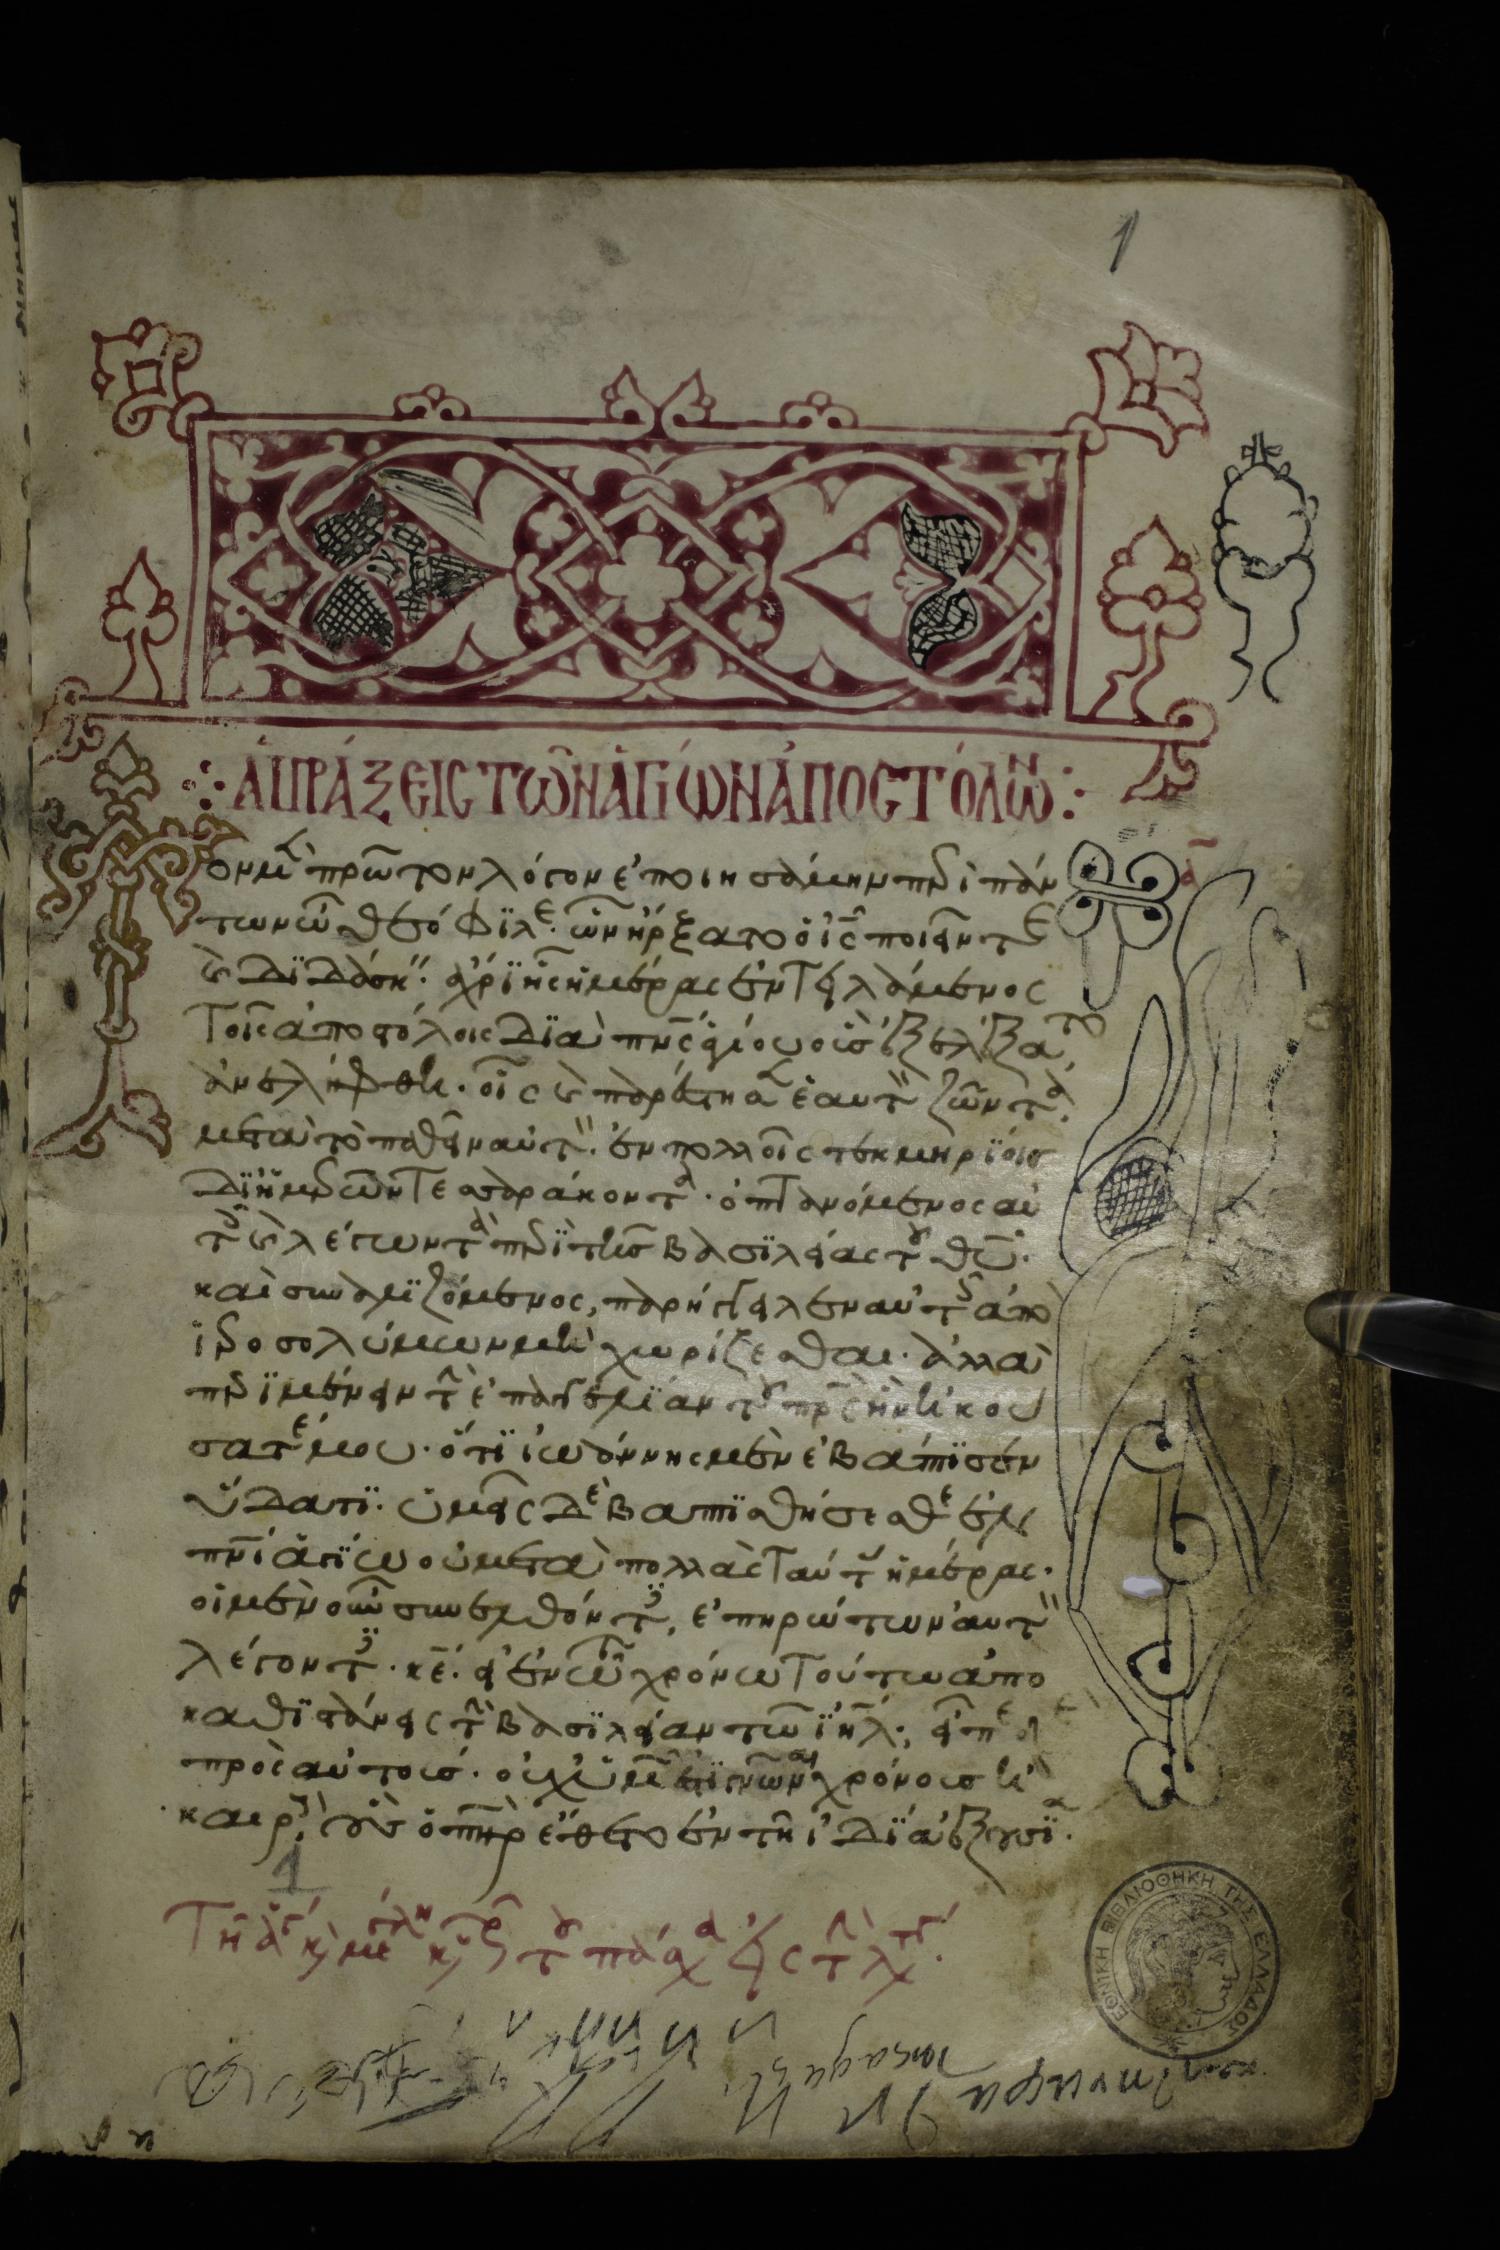 1
αἱ πράξεις τῶν ἁγίων ἀποστόλων
Τὸν μὲν πρῶτον λόγον ἐποιησάμην περὶ πάν
των ὦ θεόφιλε. ὧν ἤρξατο ὁ ἰς ποιεῖν τε
καὶ διδάσκειν. ἄχρι ἧς ἡμέρας ἐντειλάμενος
τοῖς ἀποστόλοις διὰ πνς ἁγίου οὓς ἐξελέξατο
ἀνελήφθη. οἷς καὶ παρέστησεν ἑαυτὸν ζῶντα,
μετὰ τὸ παθεῖν αὐτὸν. ἐν πολλοῖς τεκμηρίοις
δι' ἡμερῶν τεσσαράκοντα. ὀπτανόμενος αὐ
τοῖς καὶ λέγων τὰ περὶ τῆς βασιλείας τοῦ θυ.
καὶ συναλιζόμενος, παρήγγειλεν αὐτοῖς ἀπὸ
ἱεροσολύμων μὴ χωρίζεσθαι. ἀλλὰ
περιμένειν τὴν ἐπαγγελίαν τοῦ πρς ἣν ἠκού
σατέ μου. ὅτι ἰωάννης μὲν ἐβάπτισεν
ὕδατι. ὑμεῖς δὲ βαπτισθήσεσθε ἐν
πνι ἁγίω οὐ μετὰ πολλὰς ταύτας ἡμέρας.
οἱ μὲν οὖν συνελθόντες, ἐπηρώτων αὐτὸν
λέγοντες. κε. εἰ ἐν τῶ χρόνω τούτω ἀπο
καθιστάνεις τὴν βασιλείαν τῶ ιηλ; εἶπε δὲ
πρὸς αὐτούς. οὐχ ὑμῶν ἐστι γνῶναι χρόνους ἢ
καιροὺς, οὓς ὁ πηρ ἔθετο ἐν τῆ ἰδία ἐξουσία.
1
ΕΘΝΙΚΗ ΒΙΒΛΙΟΘΗΚΗ ΤΗΣ ΕΛΛΑΔΟΣ